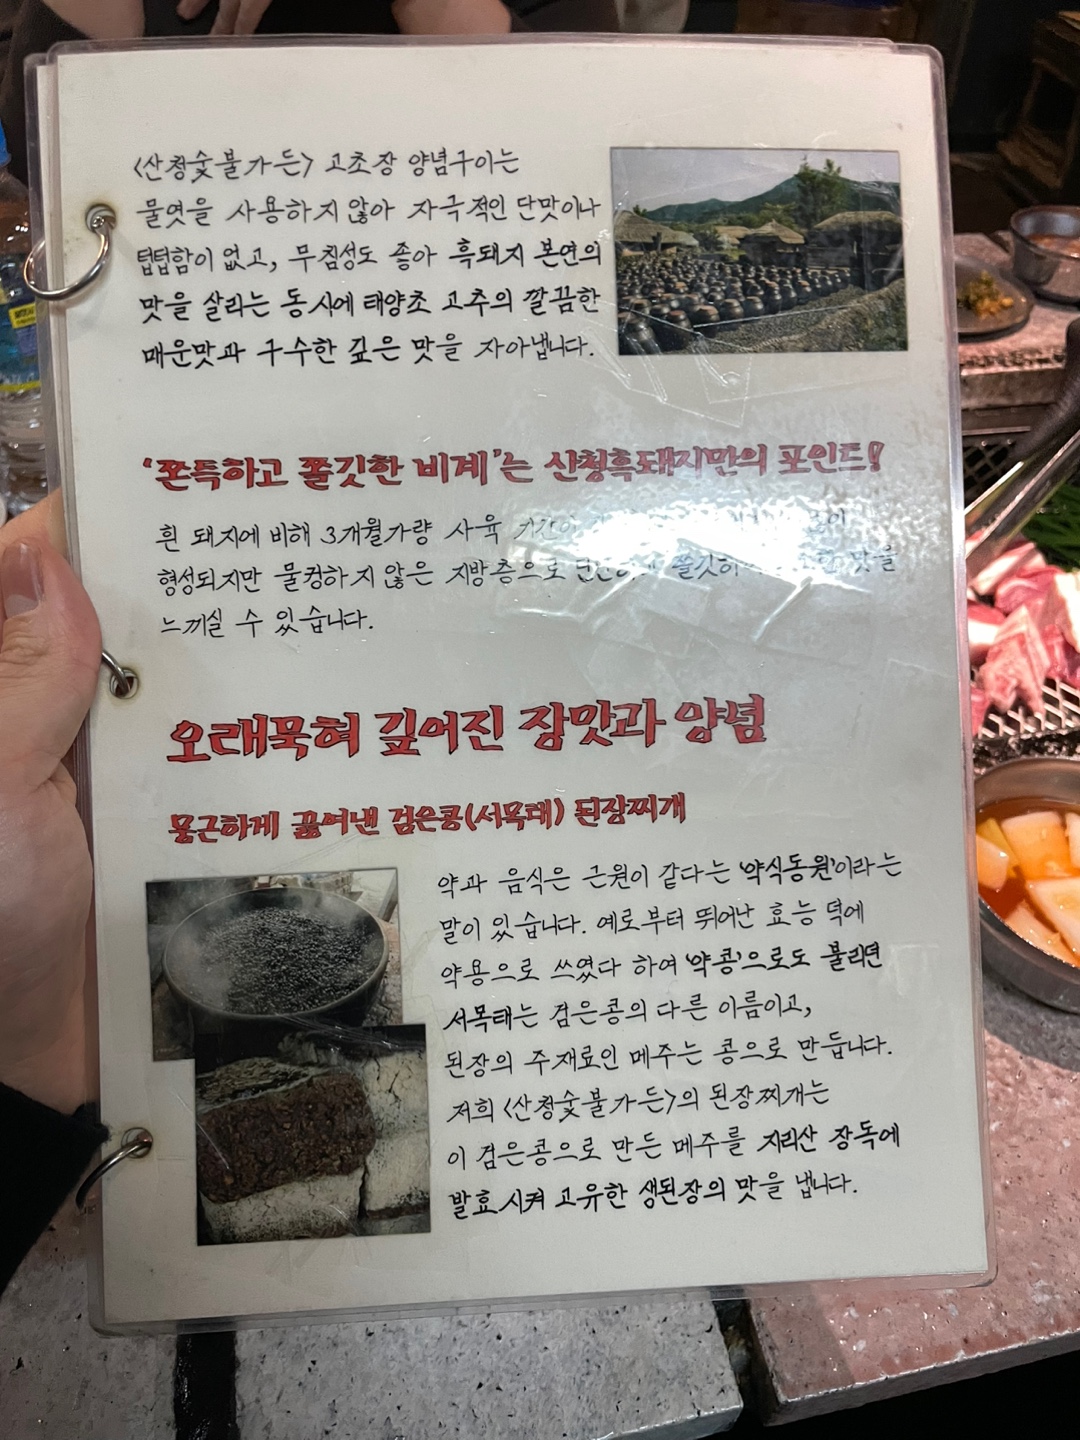 <산청숯불가든> 고초장 양념구이는
물엿을 사용하지 않아 자극적인 단맛이나
텁텁함이 없고, 무침성도 좋아 흑돼지 본연의
맛을 살리는 동시에 태양초 고추의 깔끔한
매운맛과 구수한 깊은 맛을 자아냅니다.
'쫀득하고 쫄깃한 비계'는 산청흑돼지만의 포인트!
흰 돼지에 비해 3개월가량 사육 기간이
형성되지만 물컹하지 않은 지방층으로 단단하고 맛을
느끼실 수 있습니다.
오래묵혀 깊어진 장맛과 양념
뭉근하게 끓여낸 검은콩(서목태) 된장찌개
약과 음식은 근원이 같다는 '약식동원'이라는
말이 있습니다. 예로부터 뛰어난 효능 덕에
약용으로 쓰였다 하여 '약콩'으로도 불리면
서목태는 검은콩의 다른 이름이고,
된장의 주재료인 메주는 콩으로 만듭니다.
저희 <산청숯불가든>의 된장찌개는
이 검은콩으로 만든 메주를 지리산 장독에
발효시켜 고유한 생된장의 맛을 냅니다.